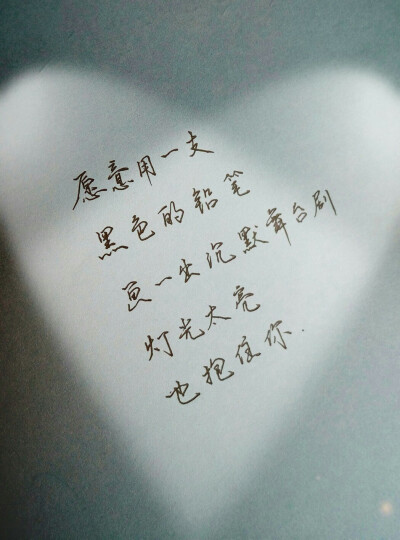 愿意用一支
黑色的铅笔
画一出沉默舞台剧
灯光太亮
也抱住你.